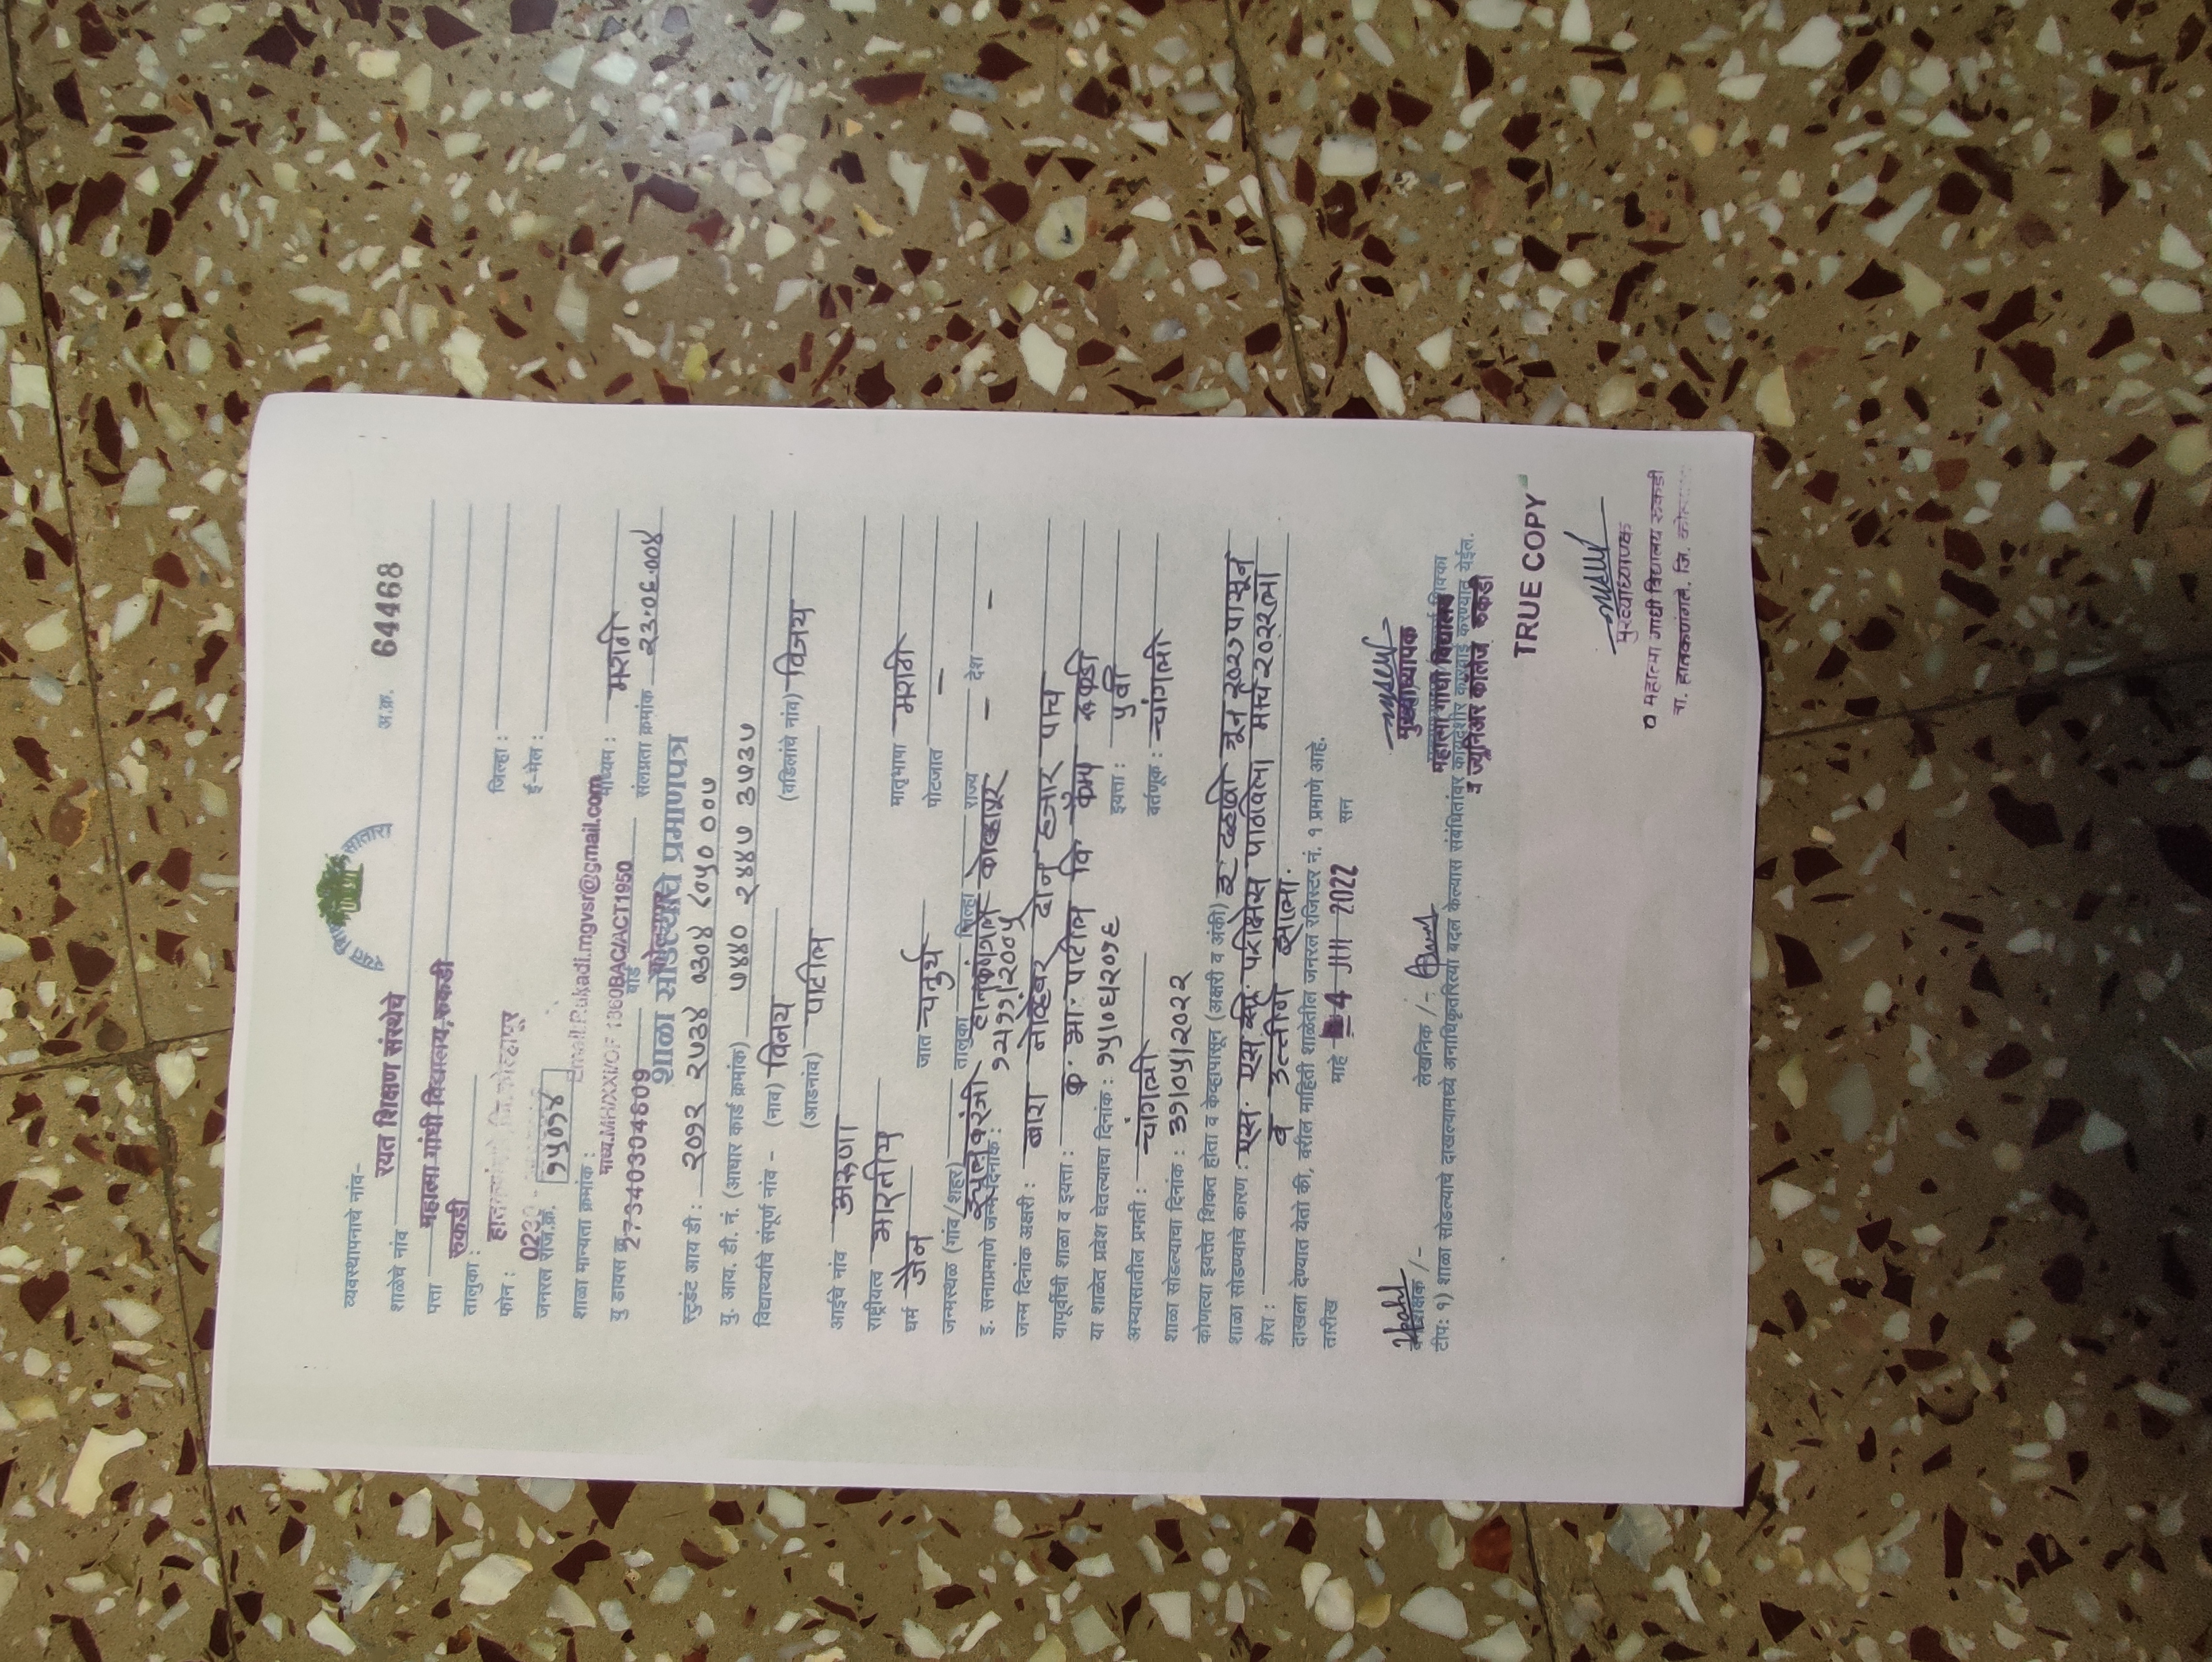 रयत शिक्षण संस्था सातारा
व्यवस्थापनाचे नांव- अ.क्र. 64468
रयत शिक्षण संस्थेचे
शाळेचे नांव
महात्मा गांधी विद्यालय, रुकडी
पत्ता
रुकडी
तालुका : जिल्हा :
फोन : ई-मेल :
जनरल रजि.क्र. १५०१४
Email.Rukadi.mgvsr@gmail.com
शाळा मान्यता क्रमांक : माध्यम : मराठी
27340304609 बोर्ड संलग्नता क्रमांक २३.०६.००४
शाळा सोडल्याचे प्रमाणपत्र
स्टुडंट आय डी : २०१२ २७३४ ०३०४ ६०५० ००७
यु. आय. डी. नं. (आधार कार्ड क्रमांक) ७४४० २४४७ ३५३७
विद्यार्थ्याचे संपूर्ण नांव - (नाव) विनय (वडिलांचे नांव) विजय
(आडनांव) पाटील
आईचे नांव अरुणा
राष्ट्रीयत्व भारतीय मातृभाषा मराठी
धर्म जैन जात चतुर्थ पोटजात -
जन्मस्थळ (गांव/शहर) तालुका जिल्हा कोल्हापूर राज्य - देश -
इ. सनाप्रमाणे जन्मदिनांक : १२/११/२००५
जन्म दिनांक अक्षरी : बारा नोव्हेंबर दोन हजार पाच
यापूर्वीची शाळा व इयत्ता : क. भा. पाटील वि. कॅम्प रुकडी
या शाळेत प्रवेश घेतल्याचा दिनांक : १५/०६/२०१६ इयत्ता : ५ वी
अभ्यासातील प्रगती : चांगली वर्तणूक : चांगली
शाळा सोडल्याचा दिनांक : ३१/०५/२०२२
कोणत्या इयत्तेत शिकत होता व केव्हापासून (अक्षरी व अंकी) इ. दहावी जून २०२१ पासून
शाळा सोडण्याचे कारण : एस. एस. सी. परीक्षेस पाठविला मार्च २०२२ला
शेरा : व उत्तीर्ण झाला.
दाखला देण्यात येतो की, वरील माहिती शाळेतील जनरल रजिस्टर नं. १ प्रमाणे आहे.
तारीख माहे 4 JUL 2022 सन
लेखनिक /- मुख्याध्यापक
महात्मा गांधी विद्यालय
टीप: १) शाळा सोडल्याचे दाखल्यामध्ये अनाधिकृतरित्या बदल केल्यास संबंधितांवर कायदेशीर कारवाई करण्यात येईल.
व ज्युनिअर कॉलेज रुकडी
TRUE COPY
मुख्याध्यापक
महात्मा गांधी विद्यालय रुकडी
ता. हातकणंगले. जि.